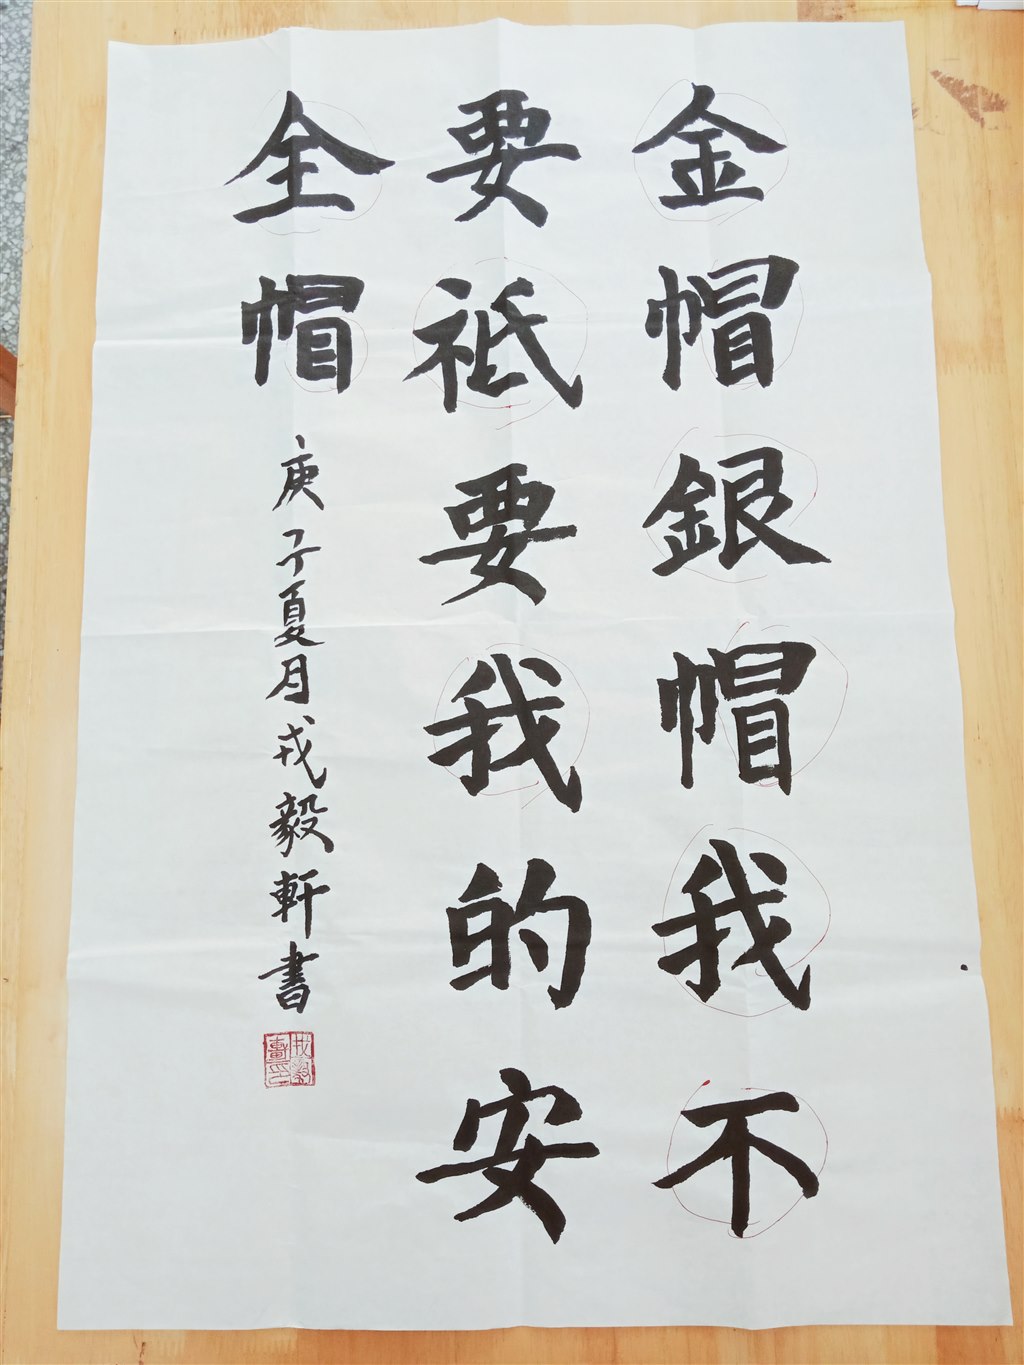 金帽銀帽我不
要祗要我的安
全帽
庚子夏月戎毅軒書